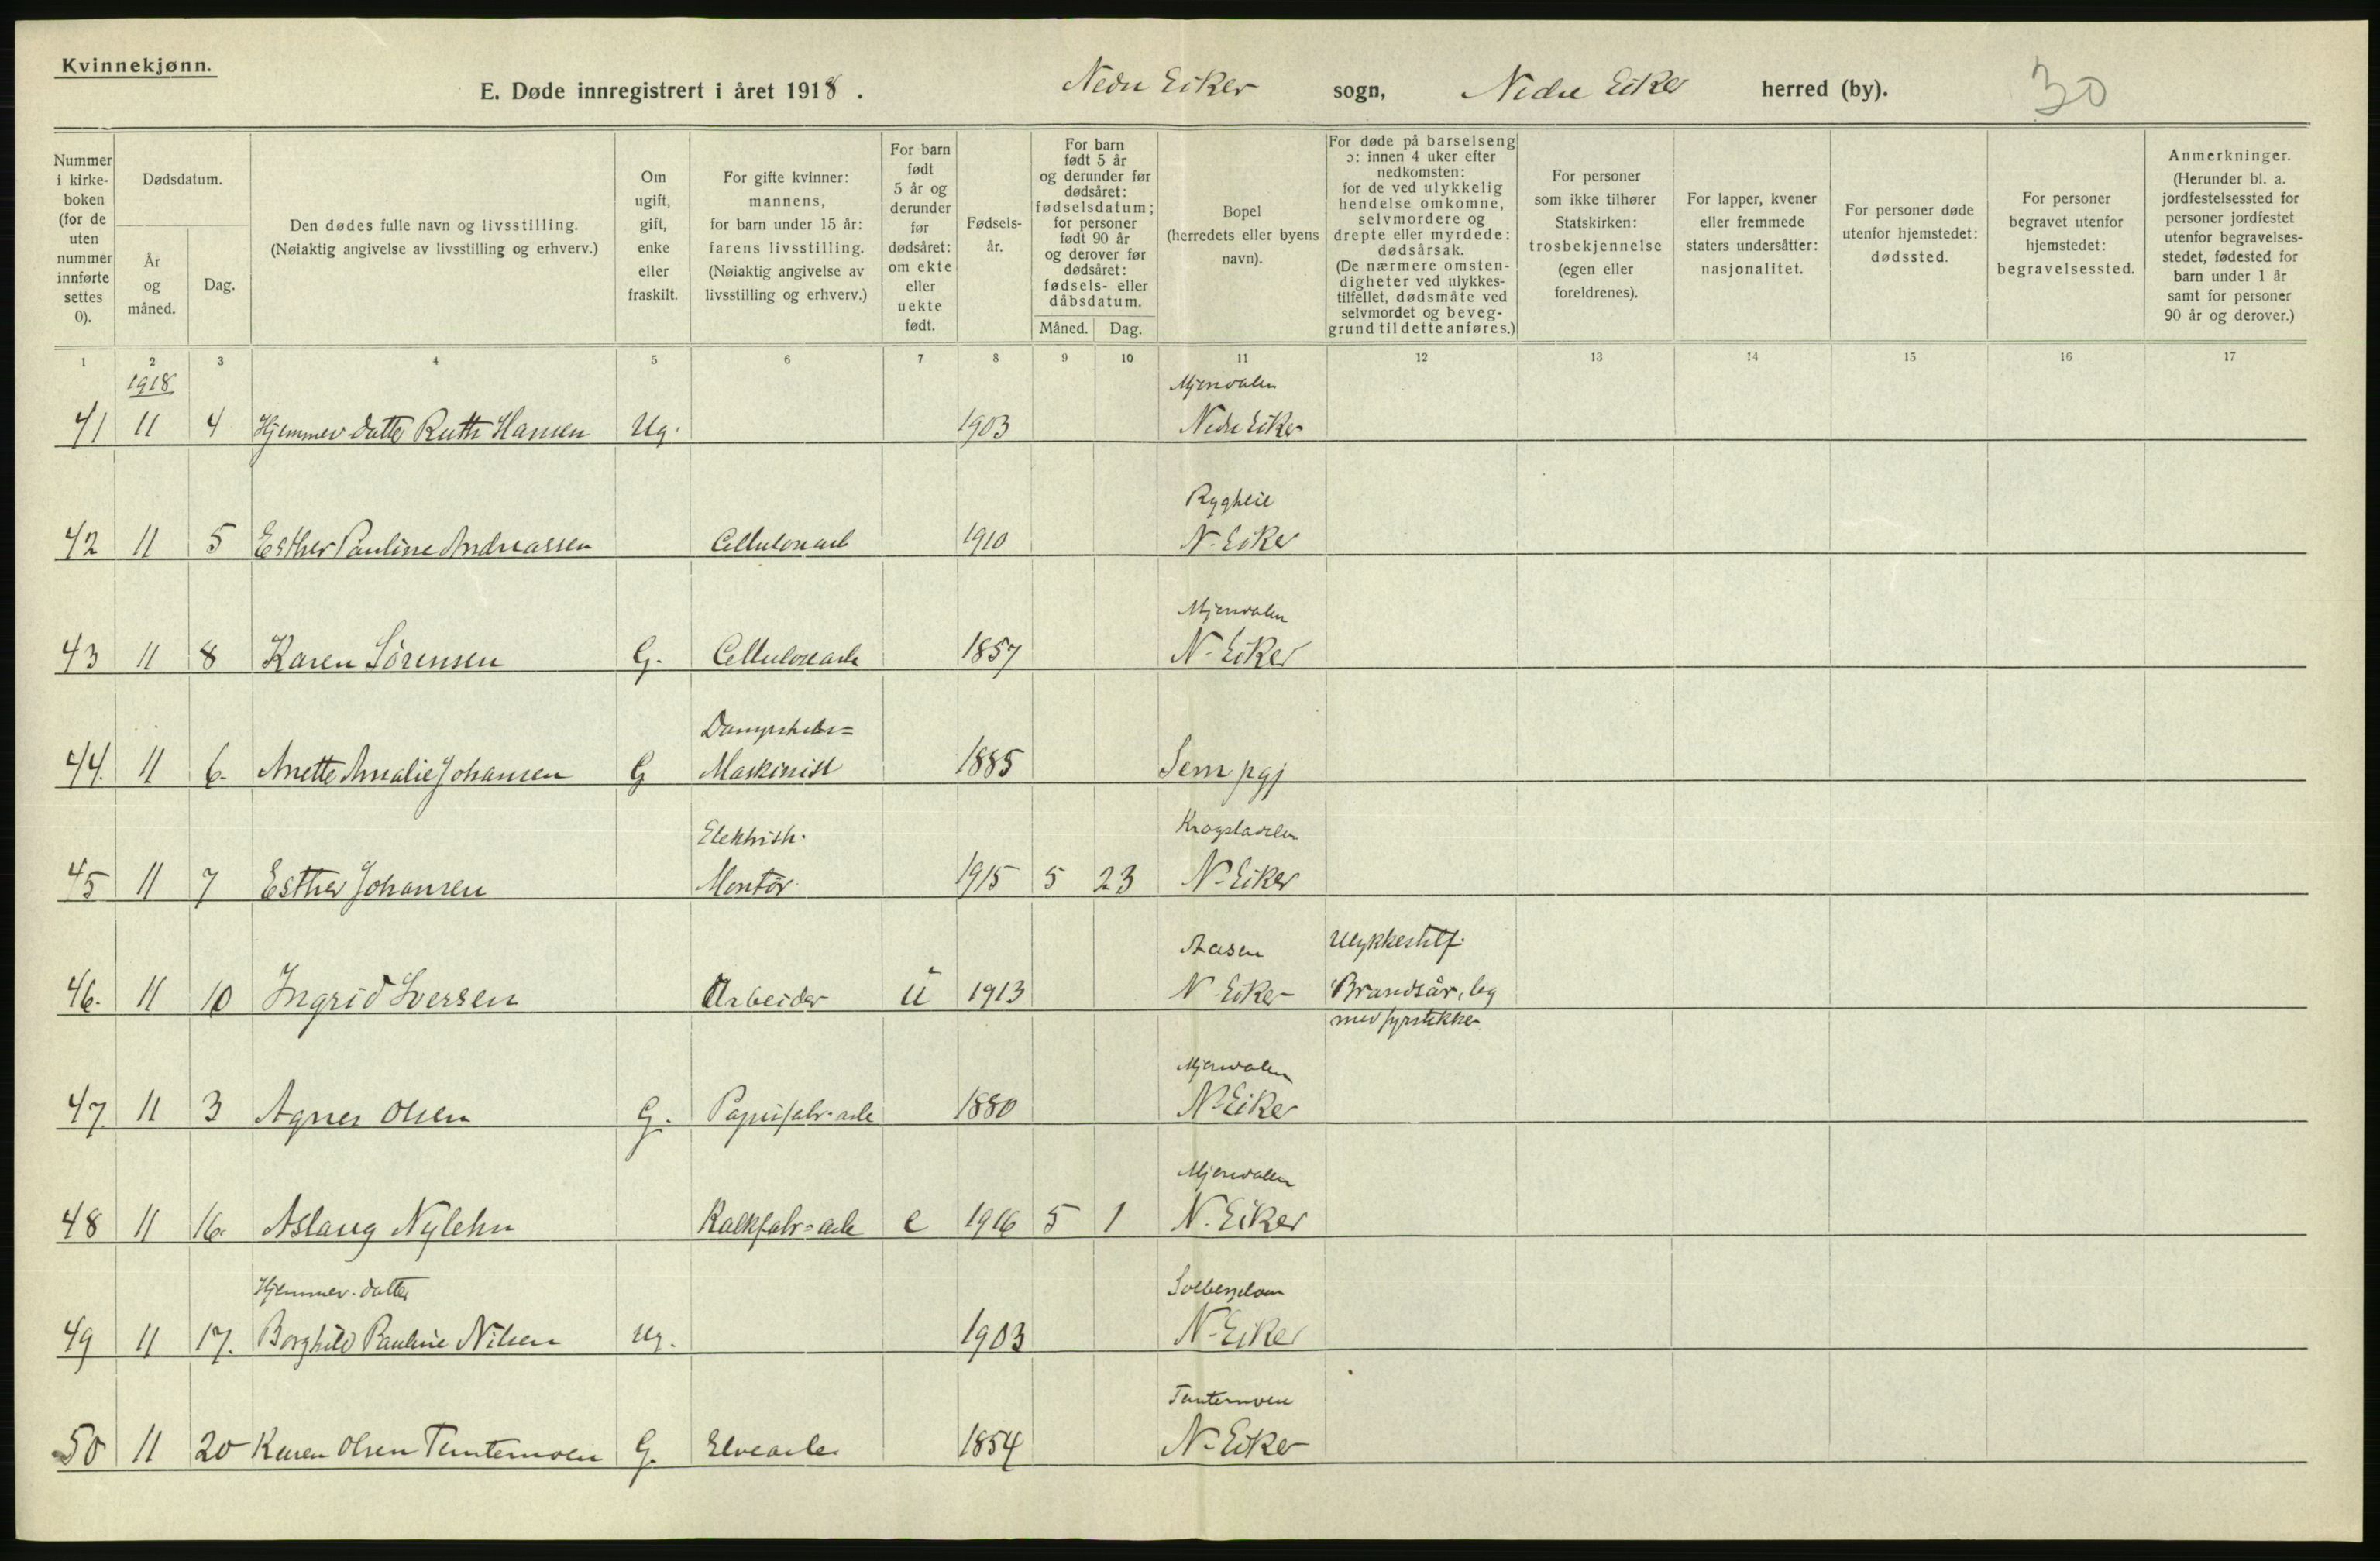 Kvinnekjønn.
E. Døde innregistrert i året 1918. Nedre Eiker sogn, Nedre Eiker herred (by). 30
Nummer i kirke-boken (for de uten nummer innførte settes 0).
Dødsdatum.
År og måned.
Dag.
Den dødes fulle navn og livsstilling.
(Nøiaktig angivelse av livsstilling og erhverv.)
Om ugift, gift, enke eller fraskilt.
For gifte kvinner: mannens, for barn under 15 år: farens livsstilling. (Nøiaktig angivelse av livsstilling og erhverv.)
For barn født 5 år og derunder før dødsåret: om ekte eller uekte født.
Fødsels-år.
For barn født 5 år og derunder før dødsåret: fødselsdatum; for personer født 90 år og derover før dødsåret: fødsels- eller dåbsdatum.
Måned. Dag.
Bopel (herredets eller byens navn).
For døde på barselseng ɔ: innen 4 uker efter nedkomsten: for de ved ulykkelig hendelse omkomne, selvmordere og drepte eller myrdede: dødsårsak. (De nærmere omsten-digheter ved ulykkes-tilfellet, dødsmåte ved selvmordet og beveg-grund til dette anføres.)
For personer som ikke tilhører Statskirken: trosbekjennelse (egen eller foreldrenes).
For lapper, kvener eller fremmede staters undersåtter: nasjonalitet.
For personer døde utenfor hjemstedet: dødssted.
For personer begravet utenfor hjemstedet: begravelsessted.
Anmerkninger. (Herunder bl. a. jordfestelsessted for personer jordfestet utenfor begravelses-stedet, fødested for barn under 1 år samt for personer 90 år og derover.)
1 2 3 4 5 6 7 8 9 10 11 12 13 14 15 16 17
1918 Mjøndalen
41 11 4 Hjemmev. datter Ruth Hansen Ug. 1903 Nedre Eiker
Rygheie
42 11 5 Esther Pauline Andreassen Cellulosearb 1910 N. Eiker
Mjøndalen
43 11 8 Karen Sørensen G. Cellulosearb 1857 N. Eiker
Dampskibs=
44. 11 6. Anette Amalie Johansen G Maskinist 1885 Sem pgj
Elektrisk. Krogstadelven
45 11 7 Esther Johansen Montør. 1915 5 23 N. Eiker
Aasen Ulykkestilf.
46. 11 10 Ingrid Iversen Arbeider u 1913 N. Eiker Brandsår, leg
med fyrstikker
Mjøndalen
47. 11 3 Agnes Olsen G. Papirfabr. arb 1880 N. Eiker
Mjøndalen
48 11 16. Aslaug Nylehn Kalkfabr=arb e 1916 5 1 N. Eiker
Hjemmev. datter Solbergelven
49 11 17. Borghild Pauline Nilsen Ug. 1903 N. Eiker
Temtemoen
50 11 20 Karen Olsen Temtemoen G. Elvearb 1854 N. Eiker